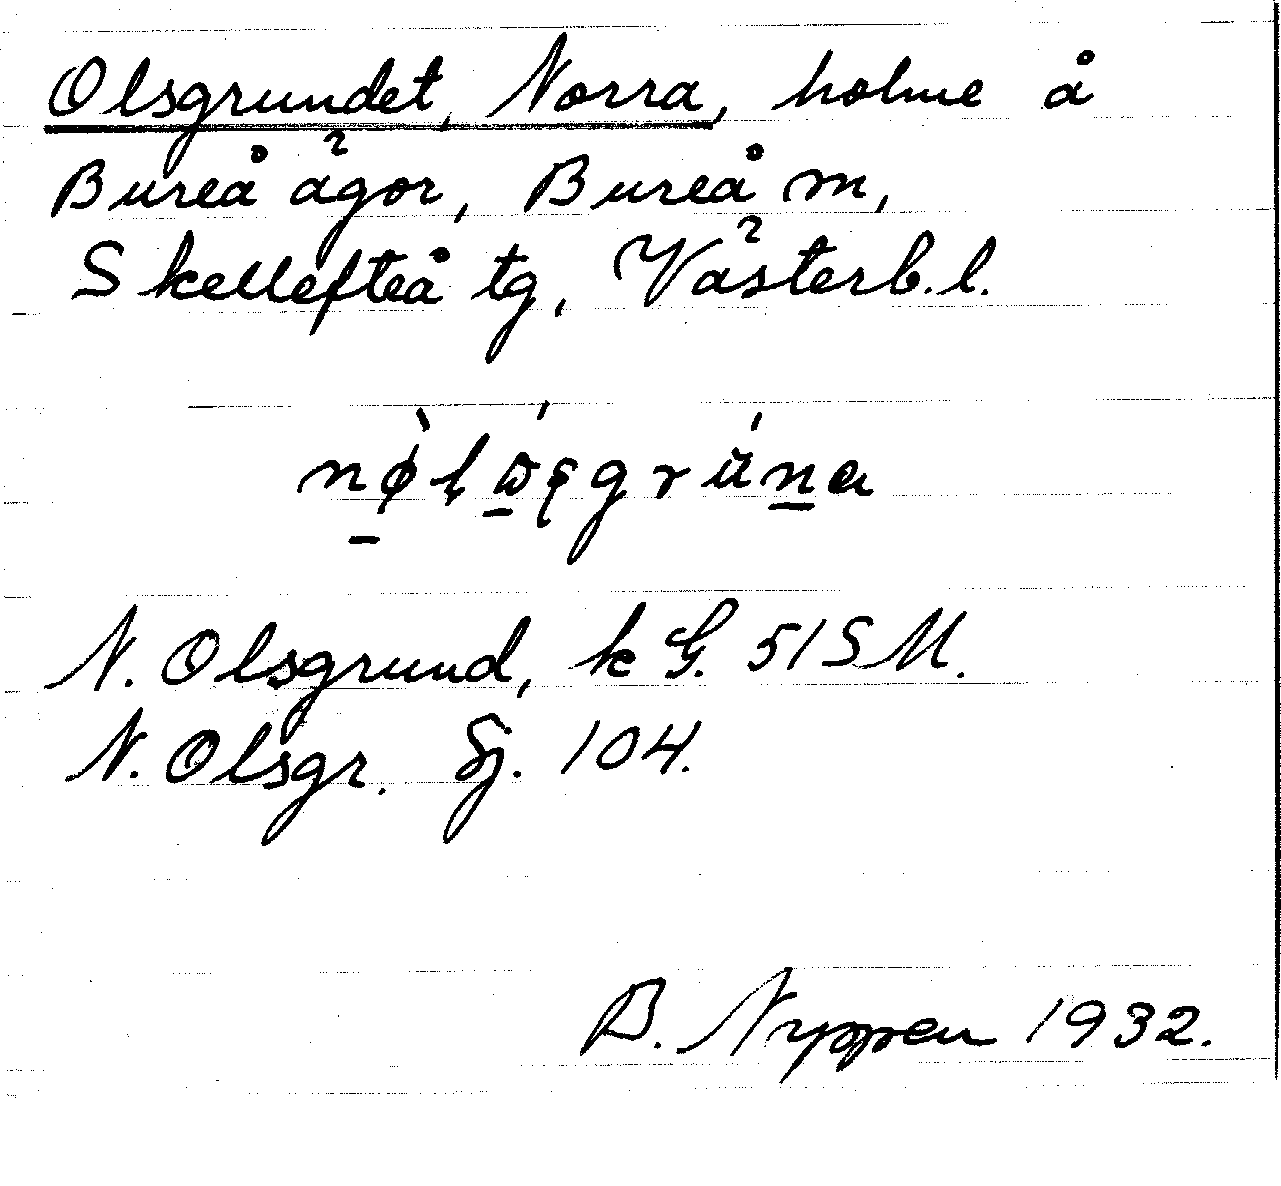 Olsgrundet, Norra, holme å
Bureå ägor, Bureå sn,
Skellefteå tg, Västerb. l.
N. Olsgrund, k G. 51 SM.
N. Olsgr. Sj. 104.
B. Nyppen 1932.